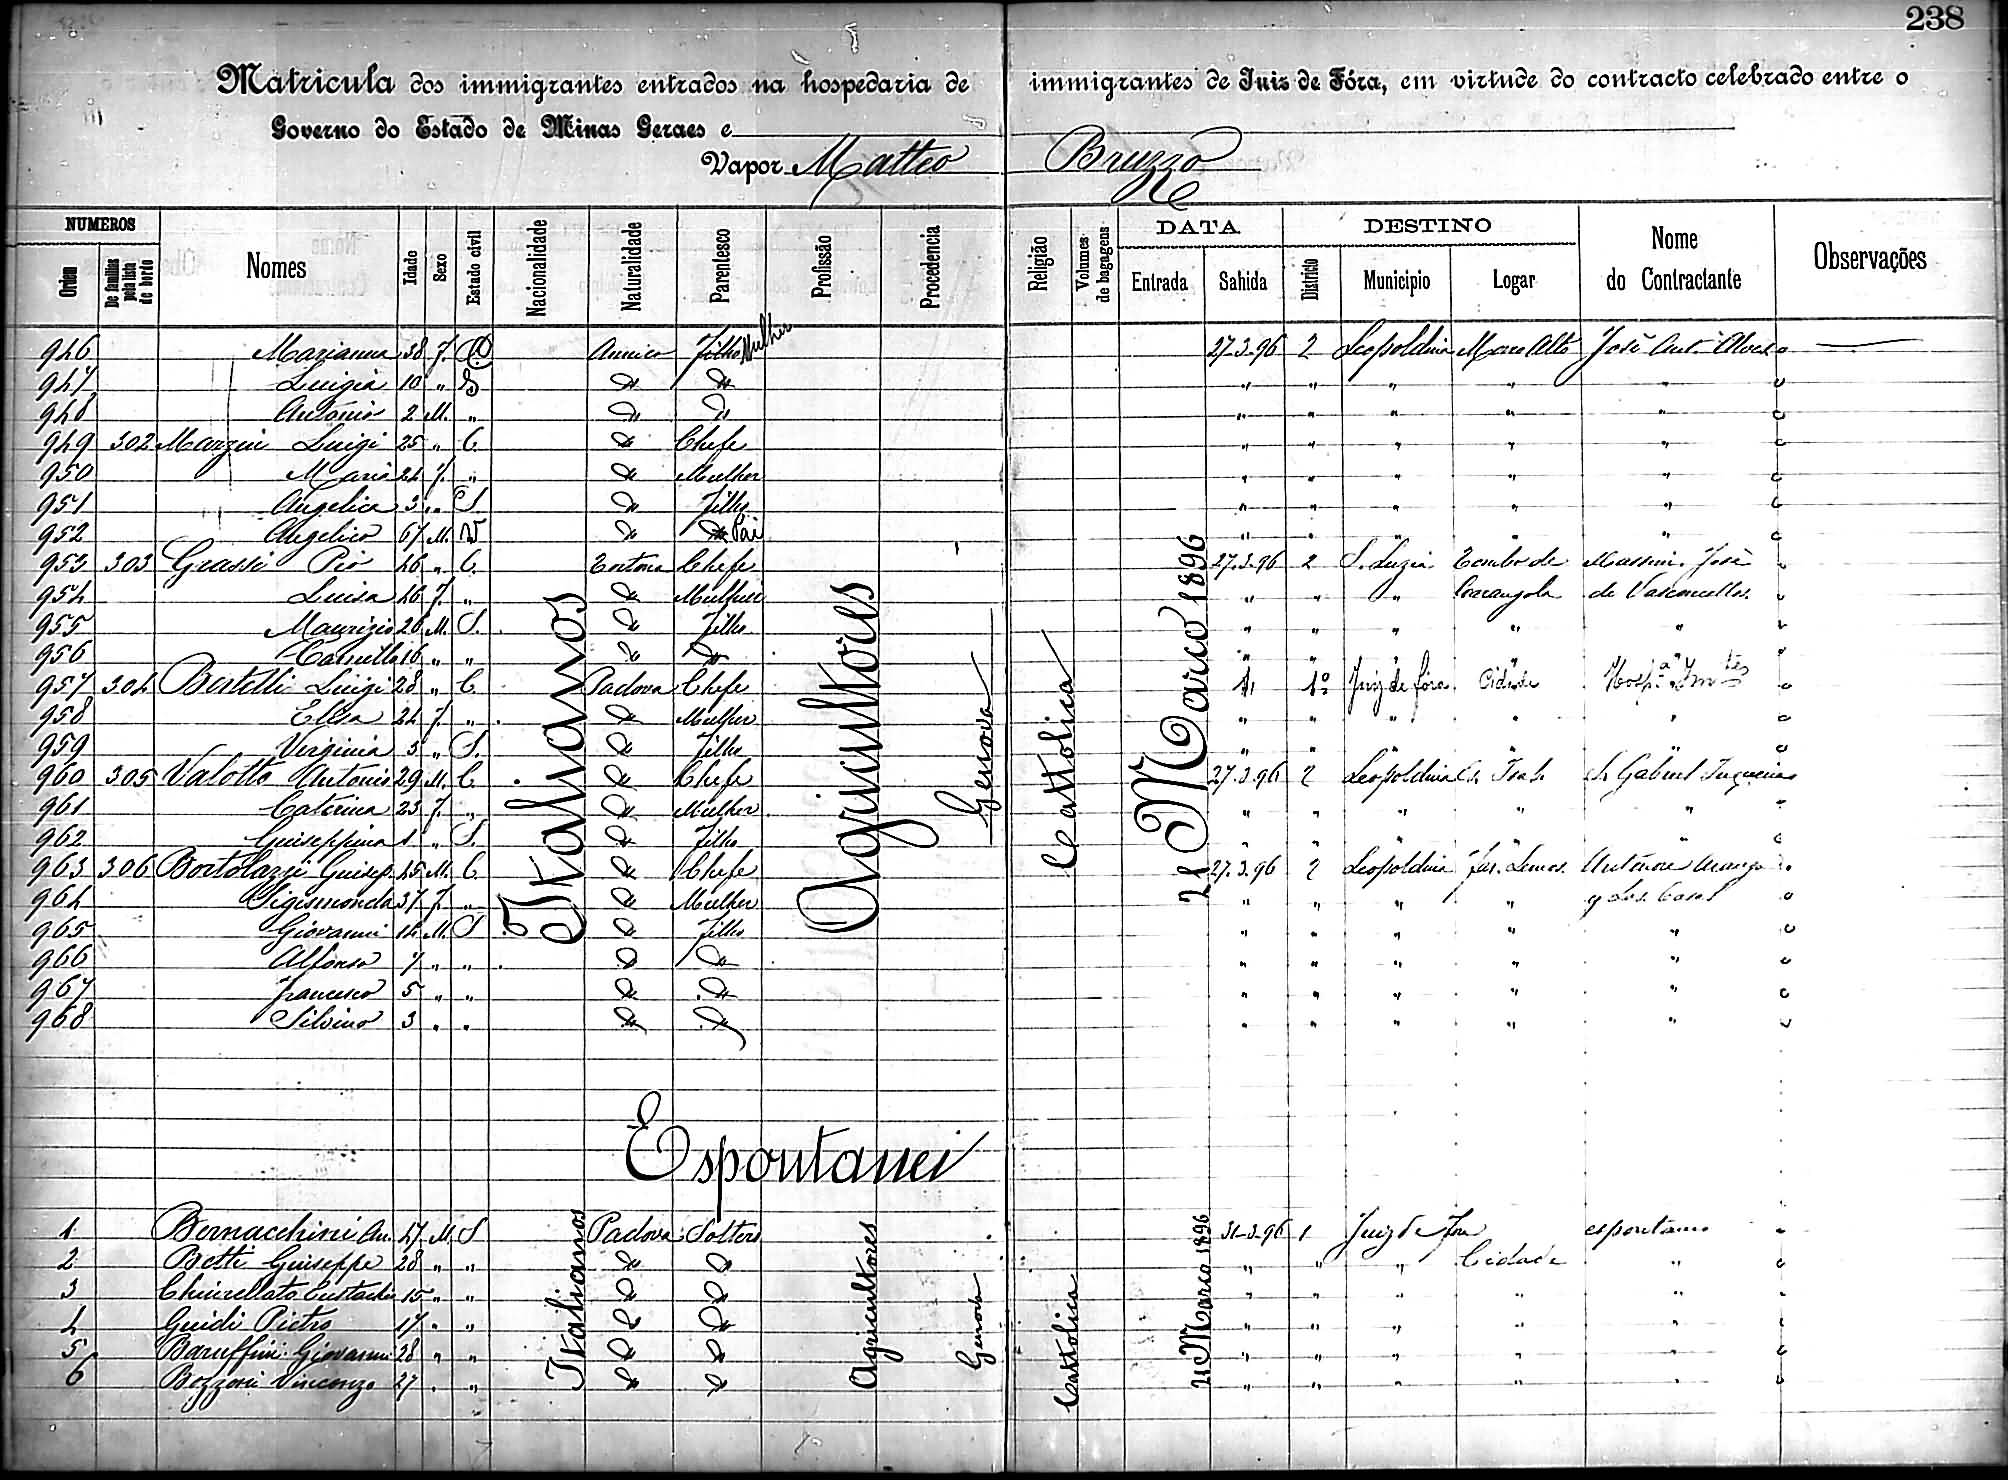 238
Matricula dos immigrantes entrados na hospedaria de immigrantes de Juiz de Fóra, em virtude do contracto celebrado entre o
Governo do Estado de Minas Geraes e
Vapor Matteo Bruzzo
NUMEROS
Ordem
De familias pela lista de bordo
Nomes
Idade
Sexo
Estado civil
Nacionalidade
Naturalidade
Parentesco
Profissão
Procedencia
Religião
Volumes de bagagens
DATA
Entrada
Sahida
DESTINO
Districto
Municipio
Logar
Nome do Contractante
Observações
946 Marianna 38 F. Filho Mulher 27-3-96 2 Leopoldina José Ant. Alves
947 Luigia 10 " S " " " " " "
948 Antonio 2 M. " " " " " " "
949 302 Luigi 25 " C. Chefe " " " " "
950 Maria 24 F. " Mulher " " " " "
951 Angelica 3 " S. Filho " " " " "
952 Angelico 67 M. V Pai " " " " "
953 303 Grassi Pio 46 " C. Chefe 27.3.96 2 S. Luzia Tombo de José
954 Luisa 46 F. " Mulher " " " Carangola de Vasconcellos
955 Maurizio 26 M. S. Filho " " " " "
956 Camillo 16 " " " " " " "
957 304 Bertelli Luigi 28 " C. Padova Chefe 1º Juiz de fóra Cidade
958 Elisa 24 F. " Mulher " " " " "
959 Virginia 3 " S. Filho " " " " "
960 305 Valotto Antonio 29 M. C. Chefe 27.3.96 2 Leopoldina Gabriel
961 Caterina 23 F. " Mulher " " " " "
962 Guiseppina 1 " S. Filho " " " " "
963 306 Bortolazzi Guisep. 45 M. C. Chefe 27.3.96 2 Leopoldina Faz. Lemos
964 Sigismonda 37 F. " Mulher " " " "
965 Giovanni 14 M. S Filho " " " " "
966 Alfonso 7 " " " " " " "
967 Francesco 5 " " " " " " "
968 Silvino 3 " " " " " " "
Italianos
Agricultores
Genova
Cattolica
21 Marco 1896
Espontanei
1 Bernacchini An. 47 M. S Padova Soltero 31-3-96 1 Juiz de Fora espontaneo
2 Betti Guiseppe 28 " " " " " Cidade "
3 Chinellato Eustachio 15 " " " " " " "
4 Guidi Pietro 17 " " " " " " "
5 Baruffini Giovanni 28 " " " " " " "
6 Bozzoni Vincenzo 27 " " " " " " "
Italianos
Agricultores
Genova
Cattolica
21 Marco 1896